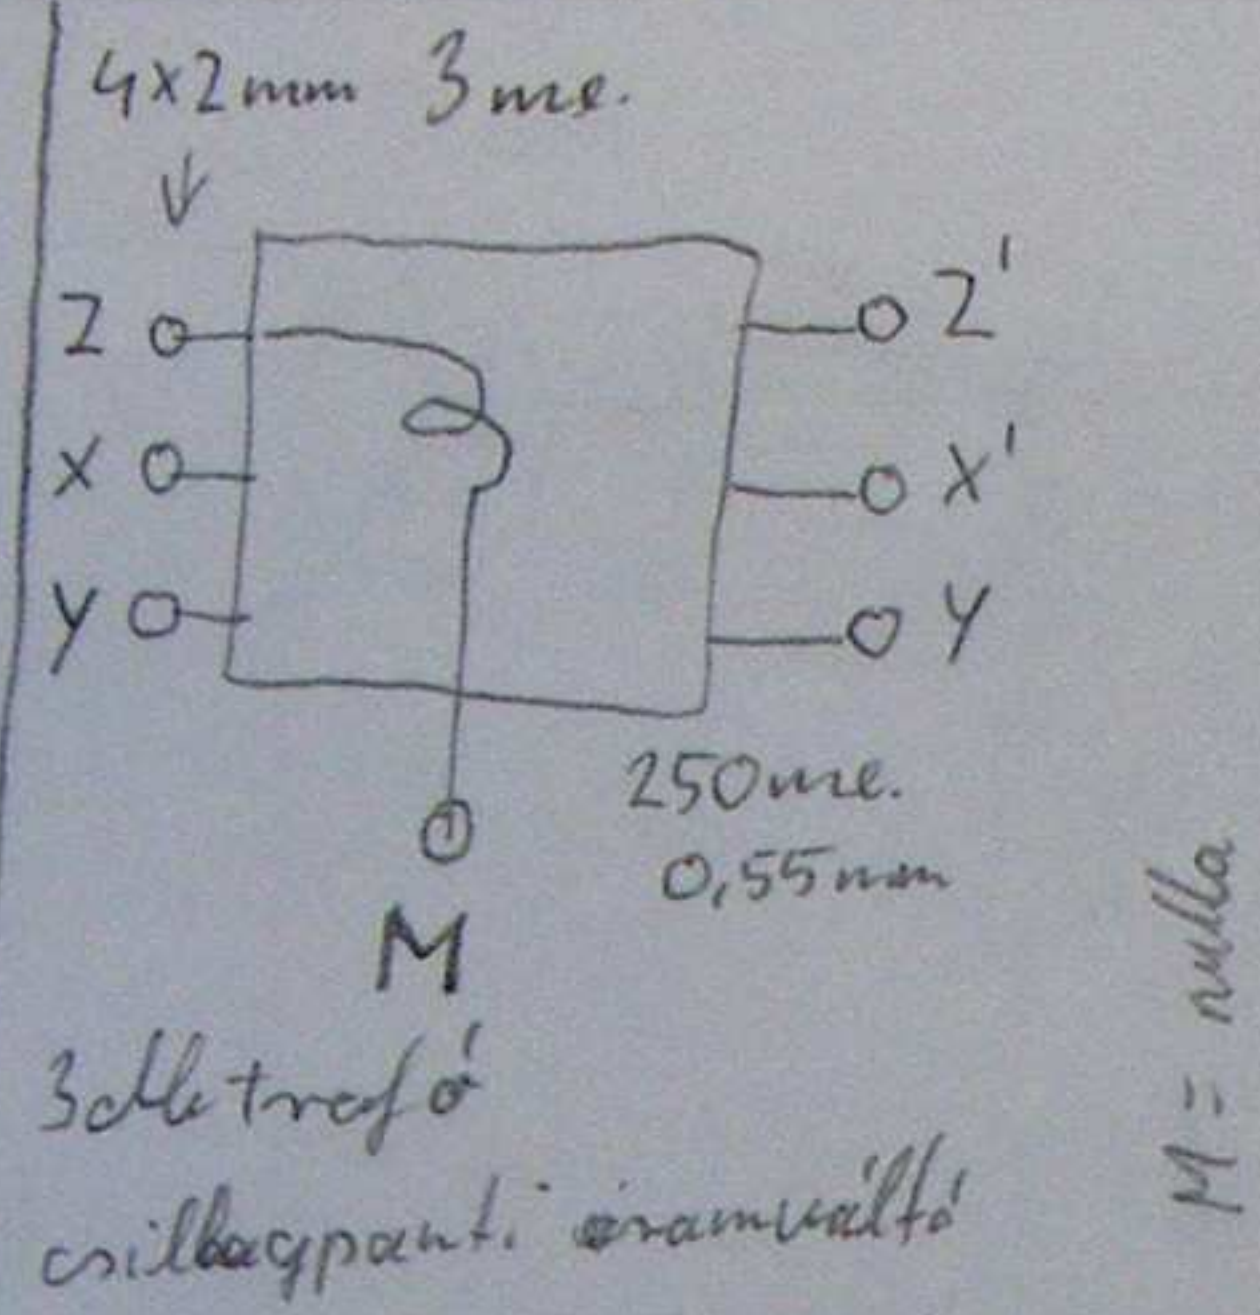 4x2mm 3 me.
Z Z'
X X'
Y Y
250 me.
0,55 mm
M
3 db trafó
csillagponti áramváltó
M = nulla